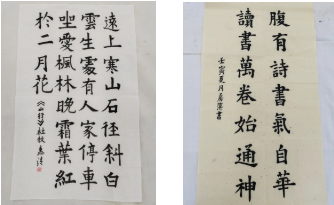 遠上寒山石径斜白
雲生處有人家停車
坐愛楓林晚霜葉紅
於二月花
《山行》杜牧
腹有詩書氣自華
讀書萬卷始通神
壬寅夏月